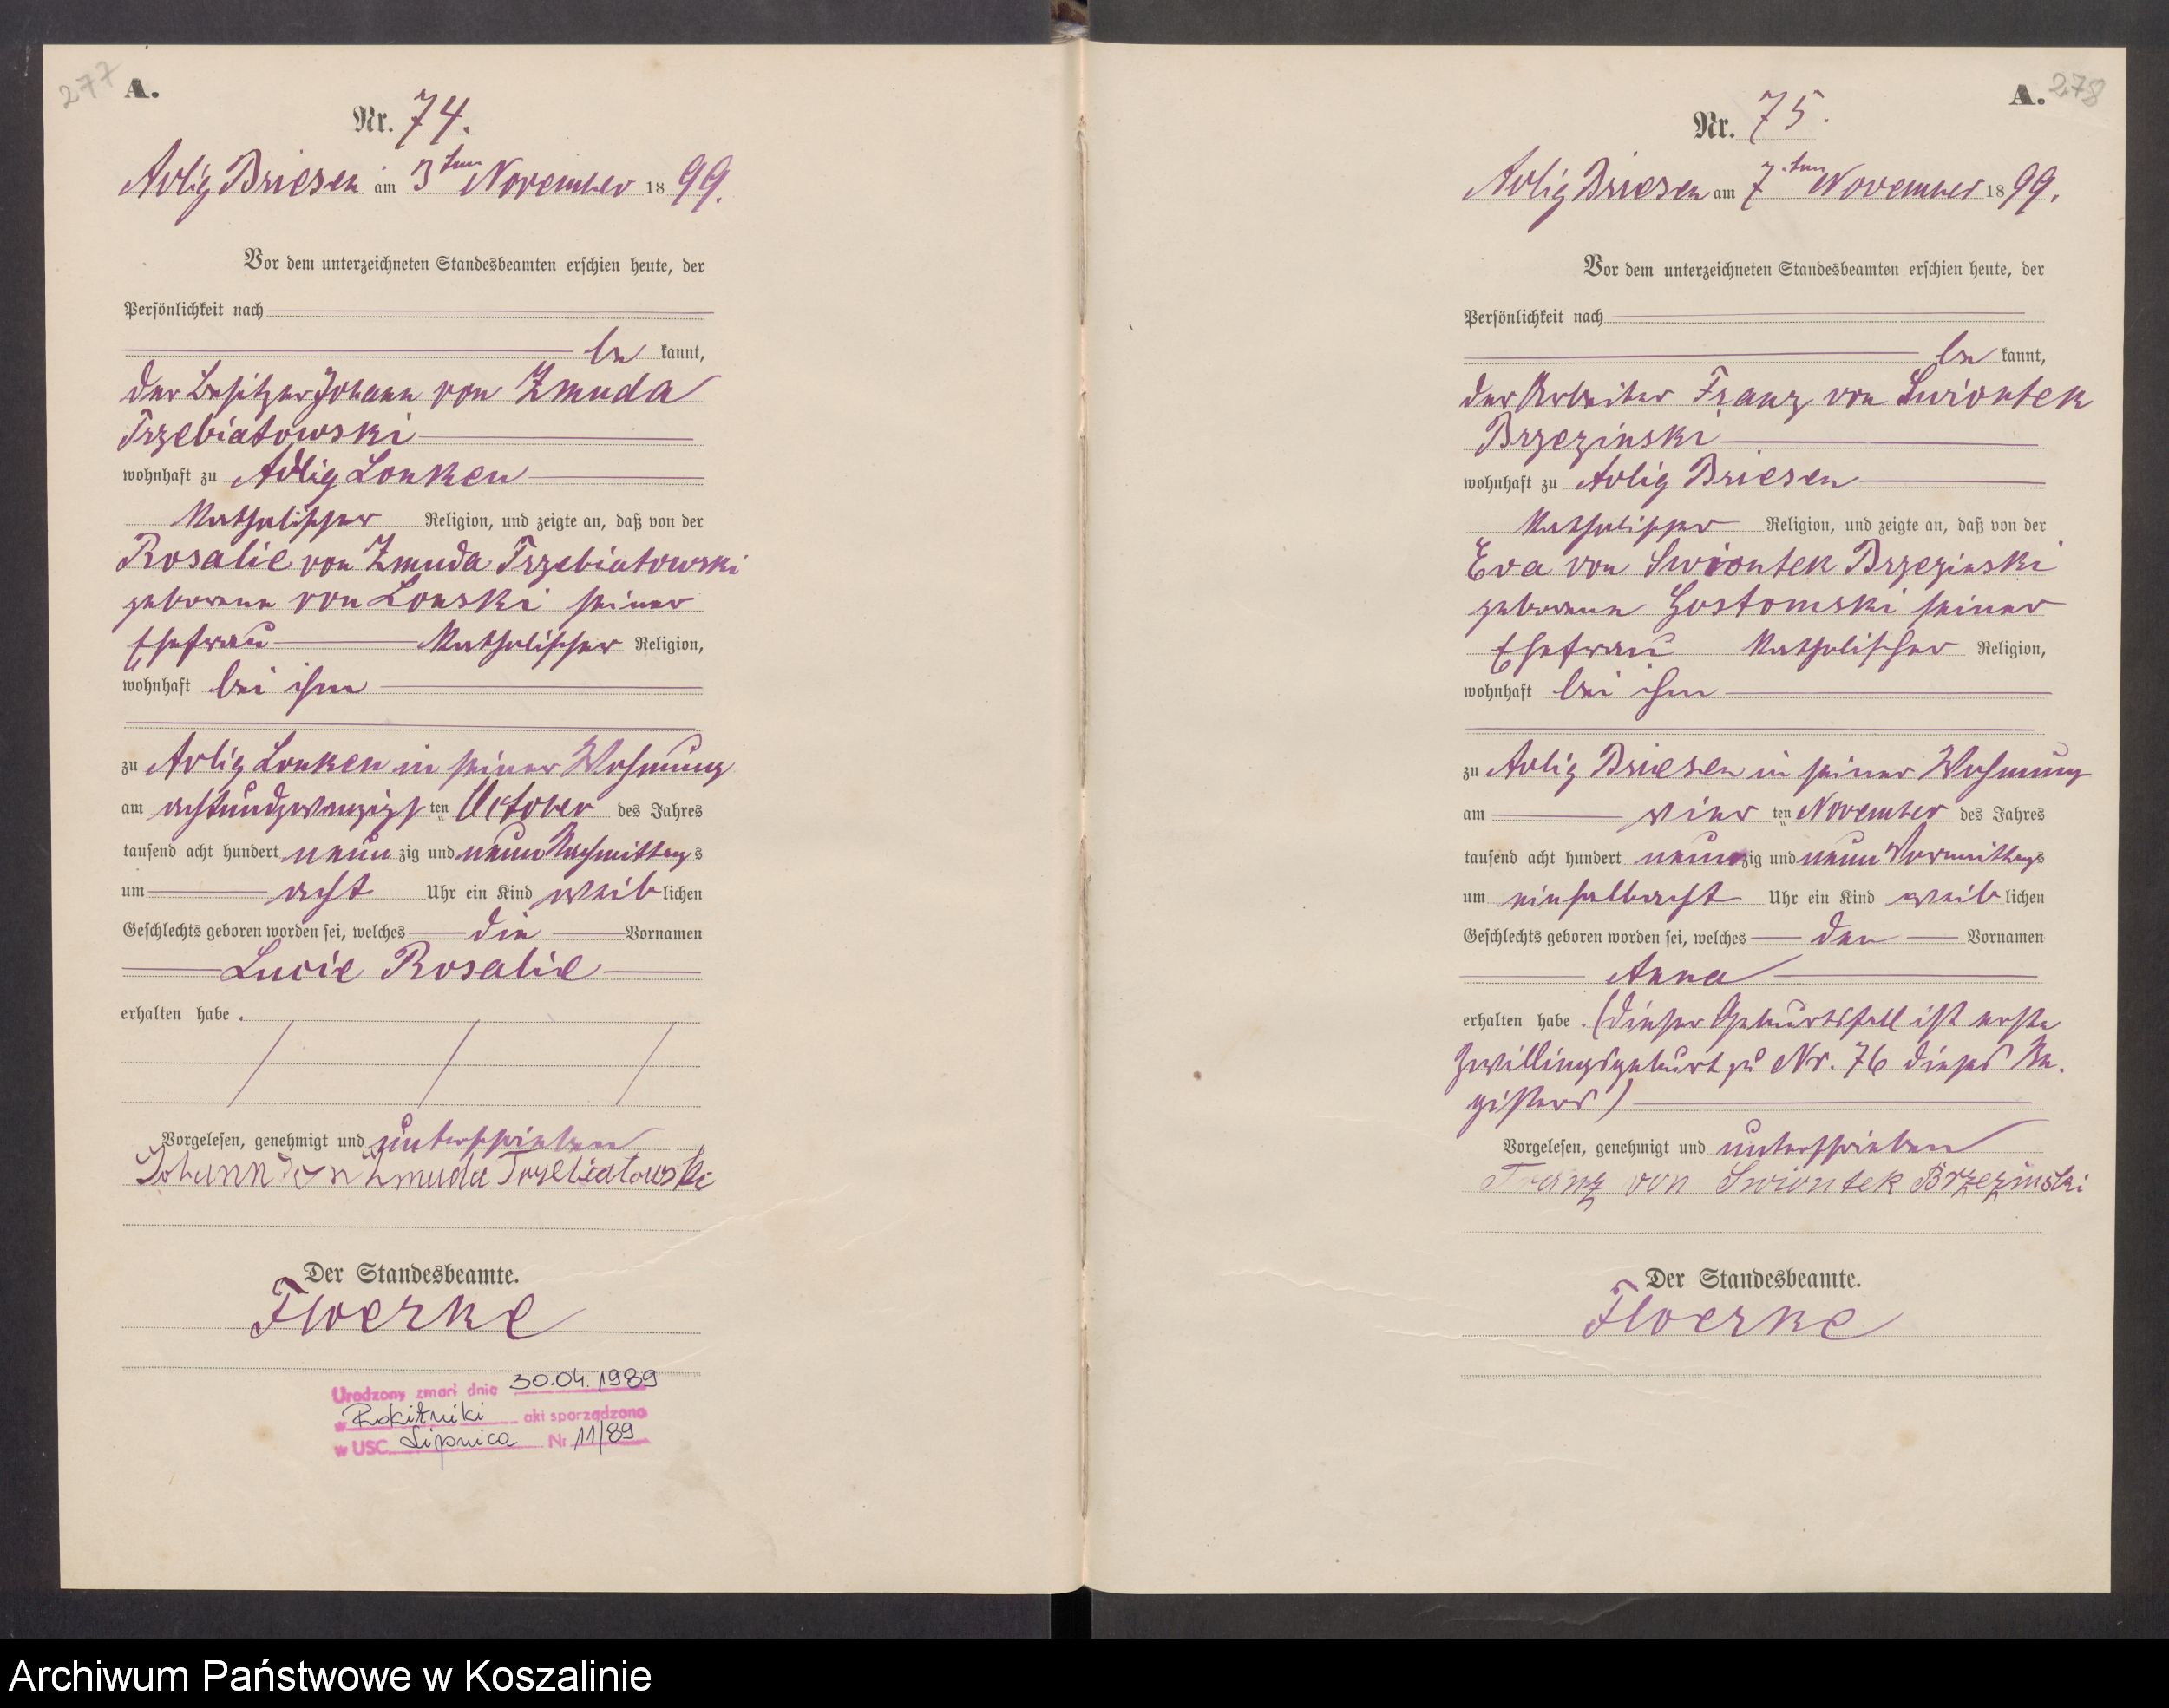 277
A.
Nr. 74.
Adlig Briesen am 3ten November 1899.
Vor dem unterzeichneten Standesbeamten erschien heute, der
Persönlichkeit nach
be kannt,
der Besitzer Johann von Zmuda
Trzebiatowski
wohnhaft zu Adlig Lonken
katholischer Religion, und zeigte an, daß von der
Rosalie von Zmuda Trzebiatowski
geborene von Lonski seiner
Ehefrau katholischer Religion,
wohnhaft bei ihm
zu Adlig Lonken in seiner Wohnung
am achtundzwanzigsten October des Jahres
tausend acht hundert neunzig und neun Nachmittags
um acht Uhr ein Kind weiblichen
Geschlechts geboren worden sei, welches die Vornamen
Lucie Rosalie
erhalten habe.
Vorgelesen, genehmigt und unterschrieben
Johann von Zmuda Trzebiatowski
Der Standesbeamte.
Floerke
Urodzony zmarł dnia 30.04.1989
w Rokitniki akt sporządzono
w USC Lipnica Nr 11/89
278
A.
Nr. 75.
Adlig Briesen am 7ten November 1899.
Vor dem unterzeichneten Standesbeamten erschien heute, der
Persönlichkeit nach
be kannt,
der Arbeiter Franz von Swiontek
Brzezinski
wohnhaft zu Adlig Briesen
katholischer Religion, und zeigte an, daß von der
Eva von Swiontek Brzezinski
geborene Gostomski seiner
Ehefrau katholischer Religion,
wohnhaft bei ihm
zu Adlig Briesen in seiner Wohnung
am vierten November des Jahres
tausend acht hundert neunzig und neun Vormittags
um einhalbacht Uhr ein Kind weiblichen
Geschlechts geboren worden sei, welches den Vornamen
Anna
erhalten habe. (Dieser Geburtsfall ist erste
Zwillingsgeburt zu Nr. 76 dieses Re-
gisters)
Vorgelesen, genehmigt und unterschrieben
Franz von Swiontek Brzezinski
Der Standesbeamte.
Floerke
Archiwum Państwowe w Koszalinie